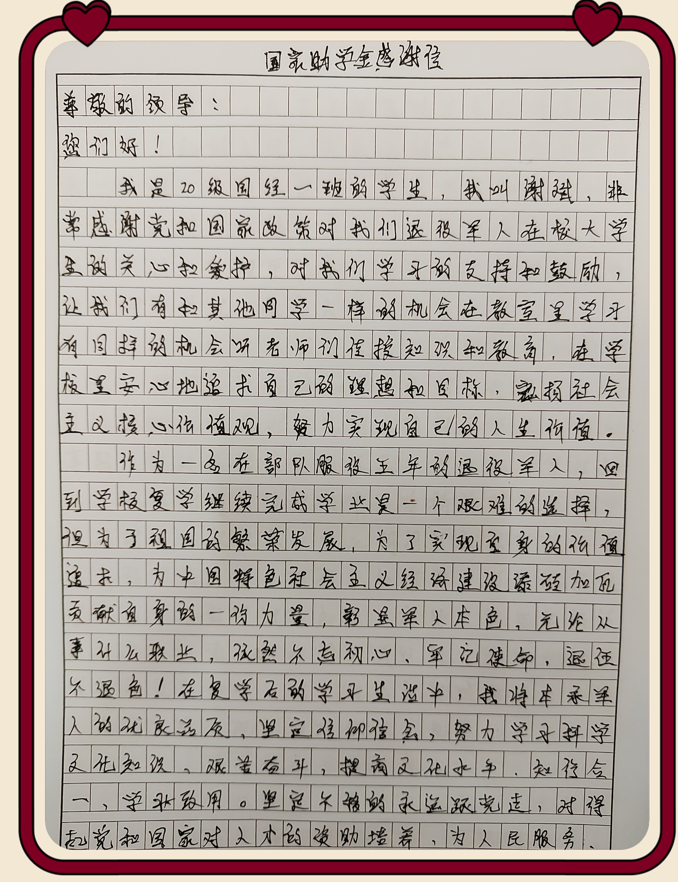 国家助学金感谢信
尊敬的领导：
您们好！
我是20级国经一班的学生，我叫谢斌，非
常感谢党和国家政策对我们退役军人在校大学
生的关心和爱护，对我们学习的支持和鼓励，
让我们有和其他同学一样的机会在教室里学习
有同样的机会听老师们传授知识和教育，在学
校里安心地追求自己的理想和目标，弘扬社会
主义核心价值观，努力实现自己的人生价值。
作为一名在部队服役五年的退役军人，回
到学校复学继续完成学业是一个艰难的选择，
但为了祖国的繁荣发展，为了实现自身的价值
追求，为中国特色社会主义经济建设添砖加瓦
贡献自身的一份力量，彰显军人本色，无论从
事什么职业，依然不忘初心、牢记使命，退伍
不退色！在复学后的学习生活中，我将本承军
人的优良品质，坚定信仰信念，努力学习科学
文化知识、艰苦奋斗，提高文化水平，知行合
一、学以致用。坚定不移的永远跟党走，对得
起党和国家对人才的资助培养，为人民服务、